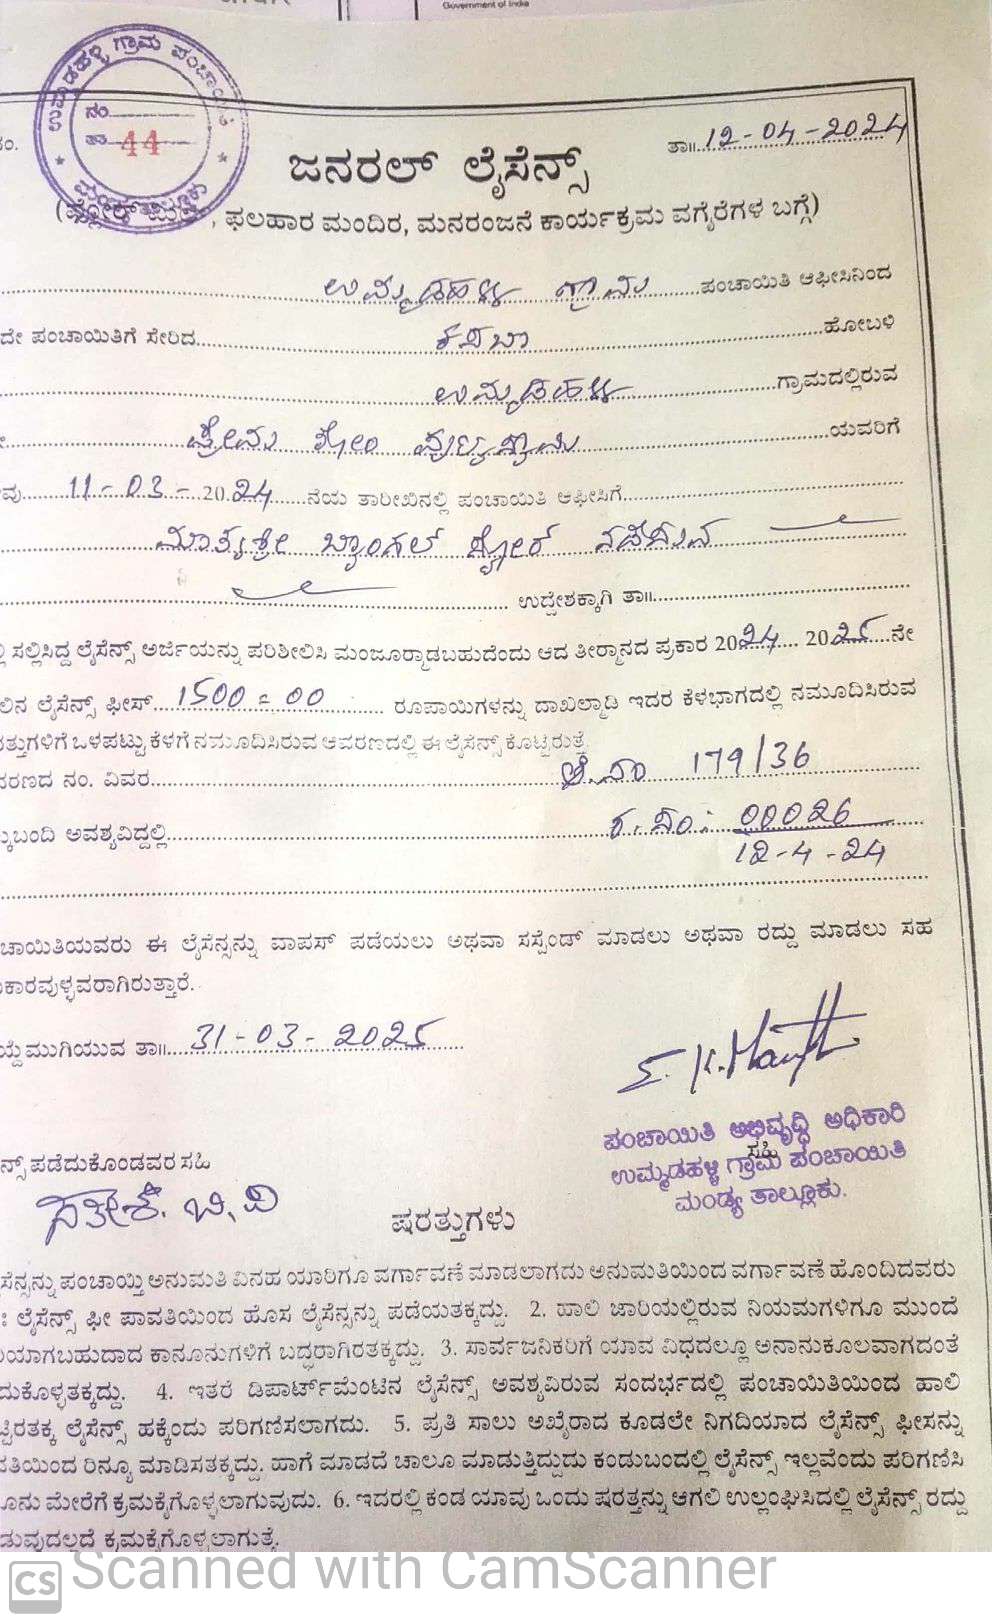 Government of India
ಉಮ್ಮಡಹಳ್ಳಿ ಗ್ರಾಮ ಪಂಚಾಯಿತಿ
ನಂ.
ತಾ 44
ನಂ.
ತಾ॥ 12-04-2024
ಜನರಲ್ ಲೈಸೆನ್ಸ್
, ಫಲಹಾರ ಮಂದಿರ, ಮನರಂಜನೆ ಕಾರ್ಯಕ್ರಮ ವಗೈರೆಗಳ ಬಗ್ಗೆ)
ಉಮ್ಮಡಹಳ್ಳಿ ಗ್ರಾಮ ಪಂಚಾಯಿತಿ ಆಫೀಸಿನಿಂದ
ದೇ ಪಂಚಾಯಿತಿಗೆ ಸೇರಿದ ಕಸಬಾ ಹೋಬಳಿ
ಉಮ್ಮಡಹಳ್ಳಿ ಗ್ರಾಮದಲ್ಲಿರುವ
ಪ್ರೇಮ ಕೋಂ ಯವರಿಗೆ
ವು 11-03-2024 ನೆಯ ತಾರೀಖಿನಲ್ಲಿ ಪಂಚಾಯಿತಿ ಆಫೀಸಿಗೆ
ಮಾತೃಶ್ರೀ ಬ್ಯಾಂಗಲ್ ಸ್ಟೋರ್ ನಡೆಸುವ
ಉದ್ದೇಶಕ್ಕಾಗಿ ತಾ॥
ಲ್ಲಿ ಸಲ್ಲಿಸಿದ್ದ ಲೈಸೆನ್ಸ್ ಅರ್ಜಿಯನ್ನು ಪರಿಶೀಲಿಸಿ ಮಂಜೂರ್‍ಮಾಡಬಹುದೆಂದು ಆದ ತೀರ್‍ಮಾನದ ಪ್ರಕಾರ 2024 2025 ನೇ
ಲಿನ ಲೈಸೆನ್ಸ್ ಫೀಸ್ 1500=00 ರೂಪಾಯಿಗಳನ್ನು ದಾಖಲ್ಮಾಡಿ ಇದರ ಕೆಳಭಾಗದಲ್ಲಿ ನಮೂದಿಸಿರುವ
ರತ್ತುಗಳಿಗೆ ಒಳಪಟ್ಟು ಕೆಳಗೆ ನಮೂದಿಸಿರುವ ಆವರಣದಲ್ಲಿ ಈ ಲೈಸೆನ್ಸ್ ಕೊಟ್ಟಿರುತ್ತೆ.
ವರಣದ ನಂ. ವಿವರ ಆ.ನಂ 179/36
ಕುಬಂದಿ ಅವಶ್ಯವಿದ್ದಲ್ಲಿ ರ.ನಂ: 00026
12-4-24
ಚಾಯಿತಿಯವರು ಈ ಲೈಸೆನ್ಸನ್ನು ವಾಪಸ್ ಪಡೆಯಲು ಅಥವಾ ಸಸ್ಪೆಂಡ್ ಮಾಡಲು ಅಥವಾ ರದ್ದು ಮಾಡಲು ಸಹ
ಕಾರವುಳ್ಳವರಾಗಿರುತ್ತಾರೆ.
ಯ್ದೆಮುಗಿಯುವ ತಾ॥ 31-03-2025
ಪಂಚಾಯಿತಿ ಅಭಿವೃದ್ಧಿ ಅಧಿಕಾರಿ
ಸಹಿ
ಉಮ್ಮಡಹಳ್ಳಿ ಗ್ರಾಮ ಪಂಚಾಯಿತಿ
ಮಂಡ್ಯ ತಾಲ್ಲೂಕು.
ನ್ಸ್ ಪಡೆದುಕೊಂಡವರ ಸಹಿ
ಸತೀಶ. ಬಿ. ವಿ
ಷರತ್ತುಗಳು
ಸೆನ್ಸನ್ನು ಪಂಚಾಯ್ತಿ ಅನುಮತಿ ವಿನಹ ಯಾರಿಗೂ ವರ್ಗಾವಣೆ ಮಾಡಲಾಗದು ಅನುಮತಿಯಿಂದ ವರ್ಗಾವಣೆ ಹೊಂದಿದವರು
: ಲೈಸೆನ್ಸ್ ಫೀ ಪಾವತಿಯಿಂದ ಹೊಸ ಲೈಸೆನ್ಸನ್ನು ಪಡೆಯತಕ್ಕದ್ದು. 2. ಹಾಲಿ ಜಾರಿಯಲ್ಲಿರುವ ನಿಯಮಗಳಿಗೂ ಮುಂದೆ
ಯಾಗಬಹುದಾದ ಕಾನೂನುಗಳಿಗೆ ಬದ್ಧರಾಗಿರತಕ್ಕದ್ದು. 3. ಸಾರ್ವಜನಿಕರಿಗೆ ಯಾವ ವಿಧದಲ್ಲೂ ಅನಾನುಕೂಲವಾಗದಂತೆ
ದುಕೊಳ್ಳತಕ್ಕದ್ದು. 4. ಇತರೆ ಡಿಪಾರ್ಟ್‌ಮೆಂಟಿನ ಲೈಸೆನ್ಸ್ ಅವಶ್ಯವಿರುವ ಸಂದರ್ಭದಲ್ಲಿ ಪಂಚಾಯಿತಿಯಿಂದ ಹಾಲಿ
ಟ್ಟಿರತಕ್ಕ ಲೈಸೆನ್ಸ್ ಹಕ್ಕೆಂದು ಪರಿಗಣಿಸಲಾಗದು. 5. ಪ್ರತಿ ಸಾಲು ಅಖೈರಾದ ಕೂಡಲೇ ನಿಗದಿಯಾದ ಲೈಸೆನ್ಸ್ ಫೀಸನ್ನು
ವತಿಯಿಂದ ರಿನ್ಯೂ ಮಾಡಿಸತಕ್ಕದ್ದು. ಹಾಗೆ ಮಾಡದೆ ಚಾಲೂ ಮಾಡುತ್ತಿದ್ದುದು ಕಂಡುಬಂದಲ್ಲಿ ಲೈಸೆನ್ಸ್ ಇಲ್ಲವೆಂದು ಪರಿಗಣಿಸಿ
ೂನು ಮೇರೆಗೆ ಕ್ರಮಕೈಗೊಳ್ಳಲಾಗುವುದು. 6. ಇದರಲ್ಲಿ ಕಂಡ ಯಾವು ಒಂದು ಷರತ್ತನ್ನು ಆಗಲಿ ಉಲ್ಲಂಘಿಸಿದಲ್ಲಿ ಲೈಸೆನ್ಸ್ ರದ್ದು
ಡುವುದಲ್ಲದೆ ಕ್ರಮಕೈಗೊಳ್ಳಲಾಗುತ್ತೆ.
CS Scanned with CamScanner